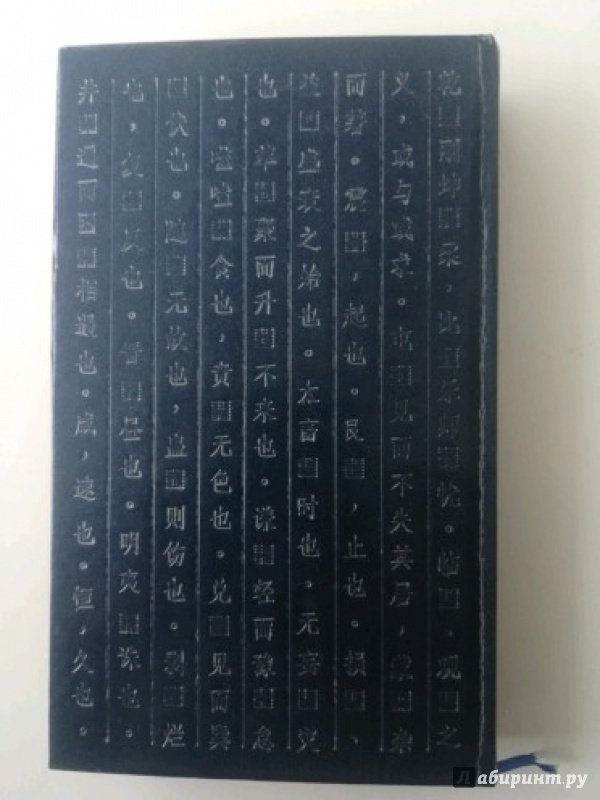 乾䷀刚坤䷁柔，比䷇乐师䷆忧。临䷒、观䷓之
义，或与或求。屯䷂见而不失其居，蒙䷃杂
而著。震䷲，起也。艮䷳，止也。损䷨、
益䷩盛衰之始也。大畜䷙时也。无妄䷘灾
也。萃䷬聚而升䷭不来也。谦䷎轻而豫䷏怠
也。噬嗑䷔食也，贲䷕无色也。兑䷹见而巽
䷸伏也。随䷐无故也，蛊䷑则饬也。剥䷖烂
也，复䷗反也。晋䷢昼也。明夷䷣诛也。
井䷯通而困䷮相遇也。咸，速也。恒，久也。
Лабиринт.ру